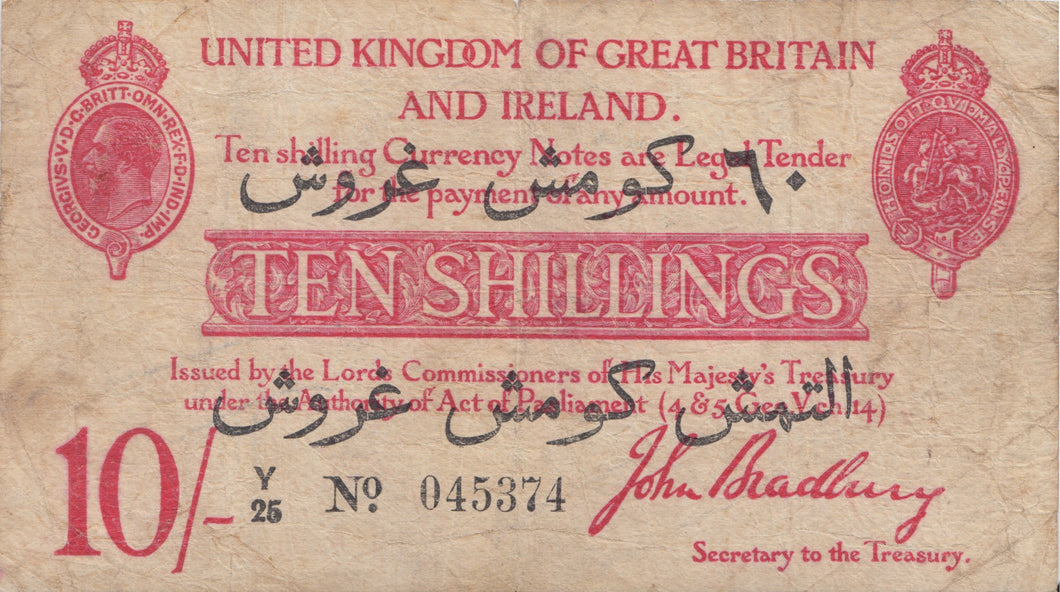 UNITED KINGDOM OF GREAT BRITAIN
AND IRELAND.
GEORGIVS·V·D·G·BRITT·OMN·REX·F·D·IND·IMP·
HONI·SOIT·QVI·MAL·Y·PENSE
Ten shilling Currency Notes are Legal Tender
for the payment of any amount.
٦٠ كومش غروش
TEN SHILLINGS
Issued by the Lords Commissioners of His Majesty's Treasury
under the Authority of Act of Parliament (4 & 5 Geo. V. ch. 14)
التمش كومش غروش
10/-
Y
25
No. 045374
John Bradbury
Secretary to the Treasury.